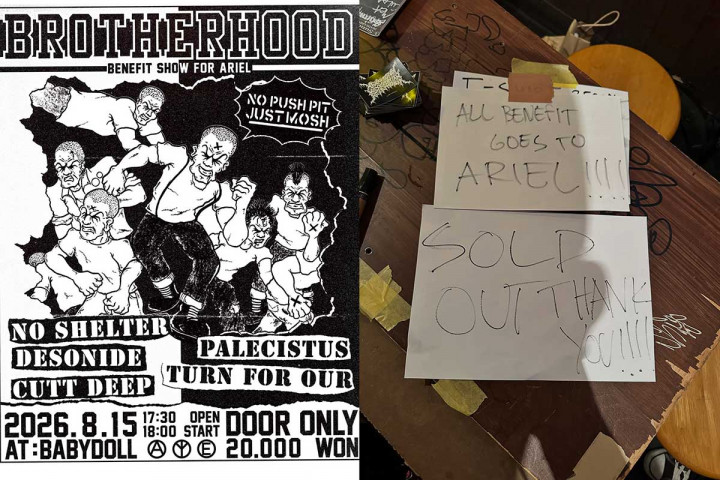 BROTHERHOOD
BENEFIT SHOW FOR ARIEL
NO PUSH PIT
JUST MOSH
NO SHELTER
DESONIDE
CUTT DEEP
PALECISTUS
TURN FOR OUR
2026.8.15
17:30 OPEN
18:00 START
DOOR ONLY
AT:BABYDOLL
A Y E
20.000 WON
ALL BENEFIT
GOES TO
ARIEL!!!!
SOLD
OUT THANK
YOU!!!!